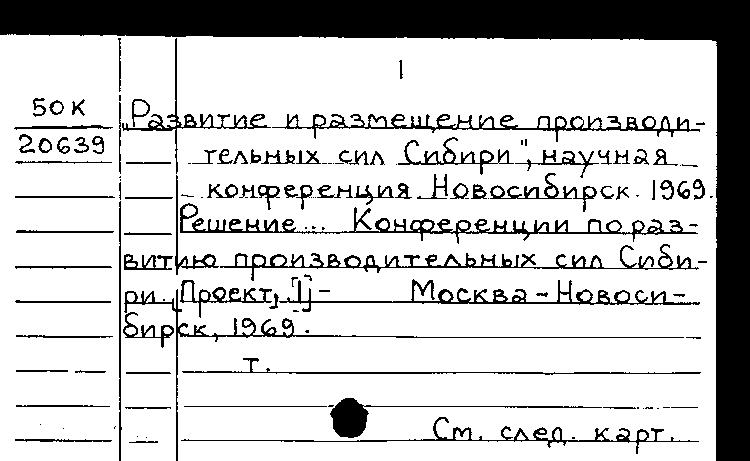 1
50К
20639
„Развитие и размещение производи-
тельных сил Сибири", научная
конференция. Новосибирск. 1969.
Решение... Конференции по раз-
витию производительных сил Сиби-
ри. [Проект]. - Москва-Новоси-
бирск, 1969.
т.
См. след. карт.